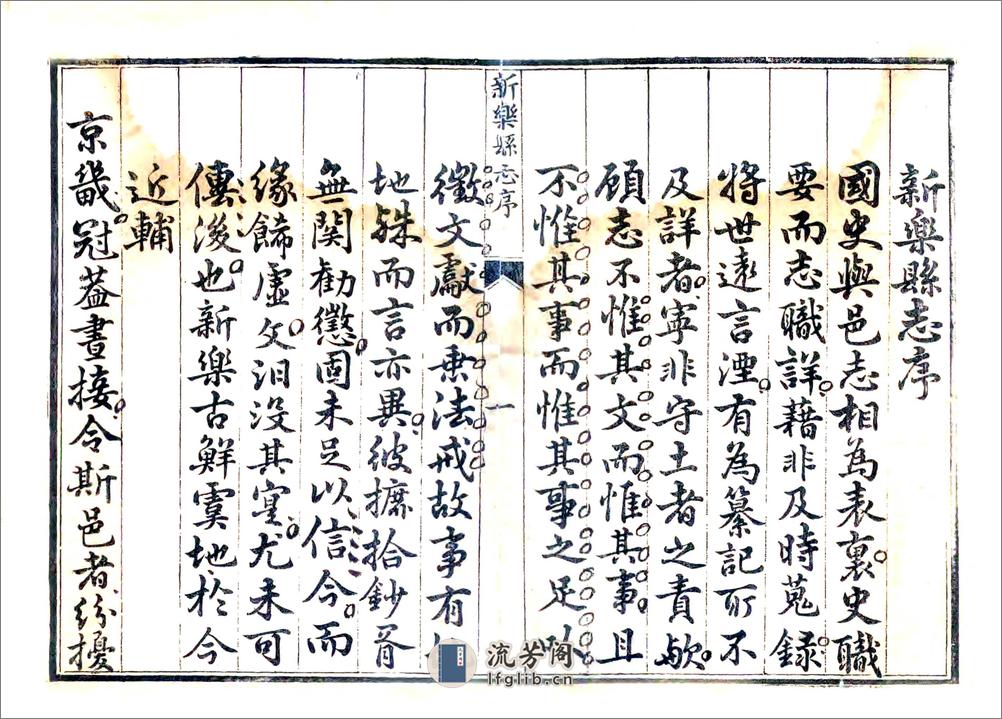 新樂縣志序
國史與邑志相為表裏史職
要而志職詳藉非及時蒐錄
將世遠言湮有為纂記所不
及詳者寧非守土者之責歟
顧志不惟其文而惟其事且
不惟其事而惟其事之足以
新樂縣志序
一
徵文獻而垂法戒故事有
地殊而言亦異彼摭拾鈔胥
無関勸懲固未足以信今而
緣餙虛文汨没其寔尤未可
傳後也新樂古鮮虞地於今
近輔
京畿冠蓋晝接令斯邑者紛擾
流芳阁
lfglib.cn